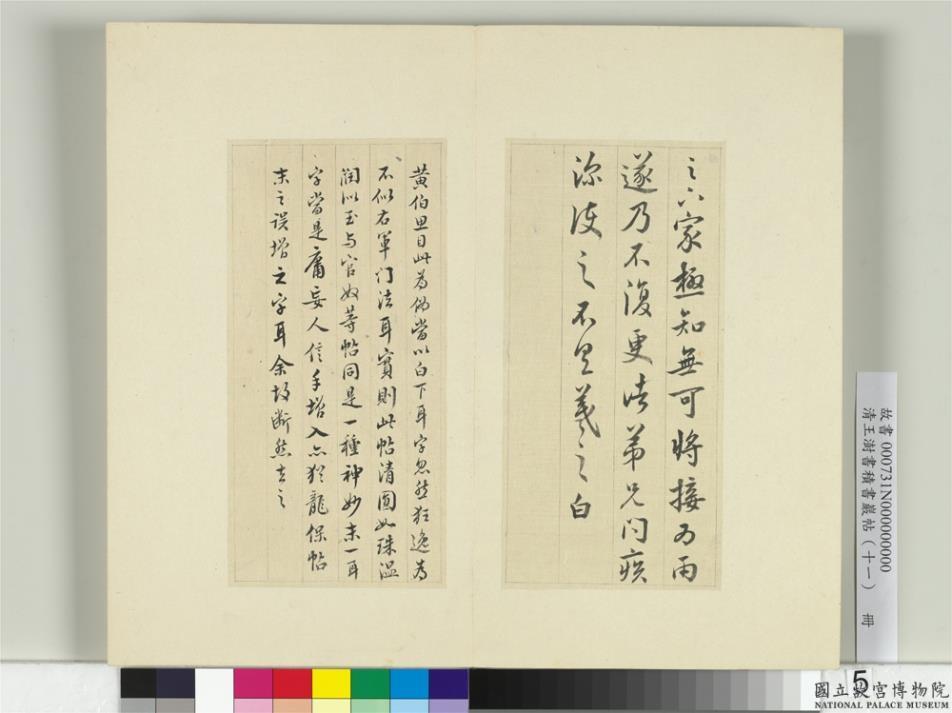 之六家極知無可將接為雨
遂乃不復更諸弟兄問疾
深護之不具羲之白
黃伯思目此為偽當以白下耳字忽然狂逸為
不似右軍門法耳實則此帖清圓如珠溫
潤似玉与官奴等帖同是一種神妙末一耳
字當是庸妄人信手增入亦猶龍保帖
末之誤增之字耳余故断然去之
故書 000731N000000000
清王澍書積書巖帖（十一） 冊
5
國立故宮博物院
NATIONAL PALACE MUSEUM